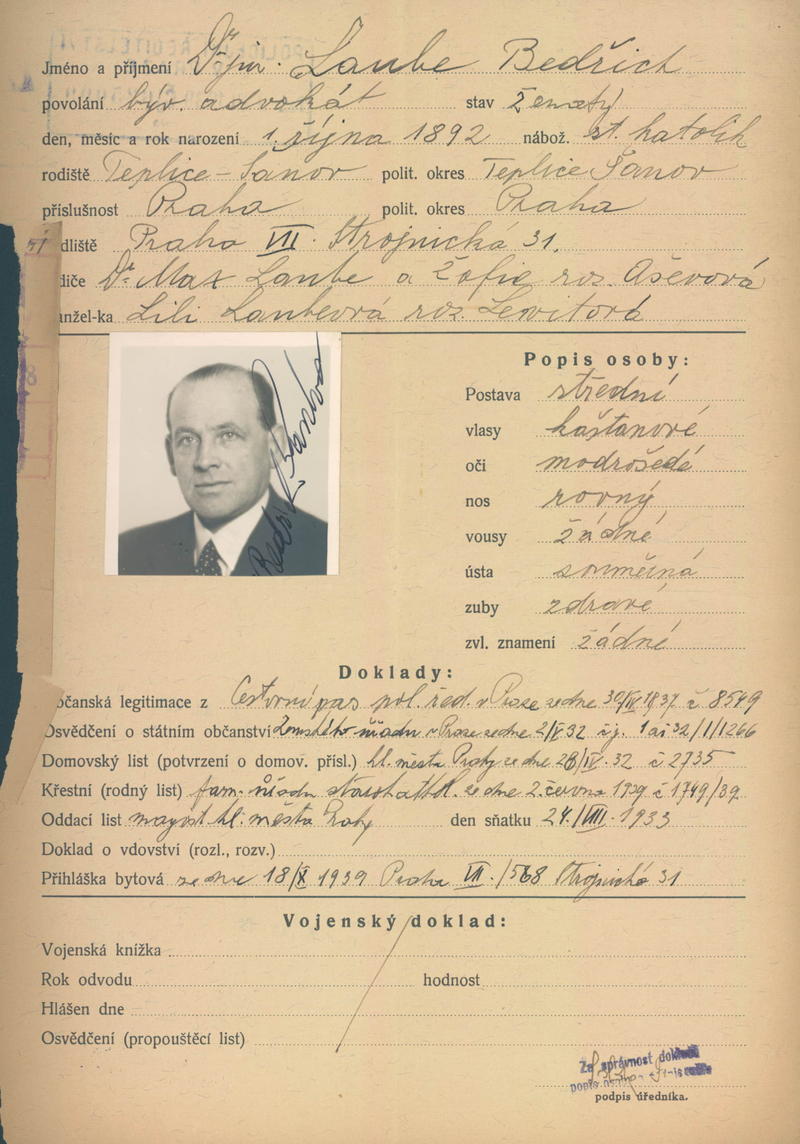 Jméno a příjmení Dr jur. Laube Bedřich
povolání býv. advokát stav ženatý
den, měsíc a rok narození 1. října 1892 nábož. st. katolík
rodiště Teplice-Šanov polit. okres Teplice Šanov
příslušnost Praha polit. okres Praha
dliště Praha VII. Strojnická 31.
diče Dr Max Laube a Žofie roz. Aševová
anžel-ka Lili Laubeová roz. Lewitová
Popis osoby:
Postava střední
vlasy kaštanové
oči modrošedé
nos rovný
vousy žádné
ústa souměrná
zuby zdravé
zvl. znamení žádné
Doklady:
bčanská legitimace z Cestovní pas pol. řed. v Praze ze dne 30/IV 1937 č 8549
Osvědčení o státním občanství Zemského úřadu v Praze ze dne 2/V 32 č.j. 1 ai 32/1/1266
Domovský list (potvrzení o domov. přísl.) hl. města Prahy ze dne 28/IV. 32 č 2735
Křestní (rodný list) fam. úřadu starokattol. ze dne 2. června 1939 č 1749/39
Oddací list magist. hl. města Prahy den sňatku 24./VIII. 1933
Doklad o vdovství (rozl., rozv.)
Přihláška bytová ze dne 18/X 1939 Praha VII./568 Strojnická 31
Vojenský doklad:
Vojenská knížka
Rok odvodu hodnost
Hlášen dne
Osvědčení (propouštěcí list)
Za správnost dokladů
popis
podpis úředníka.